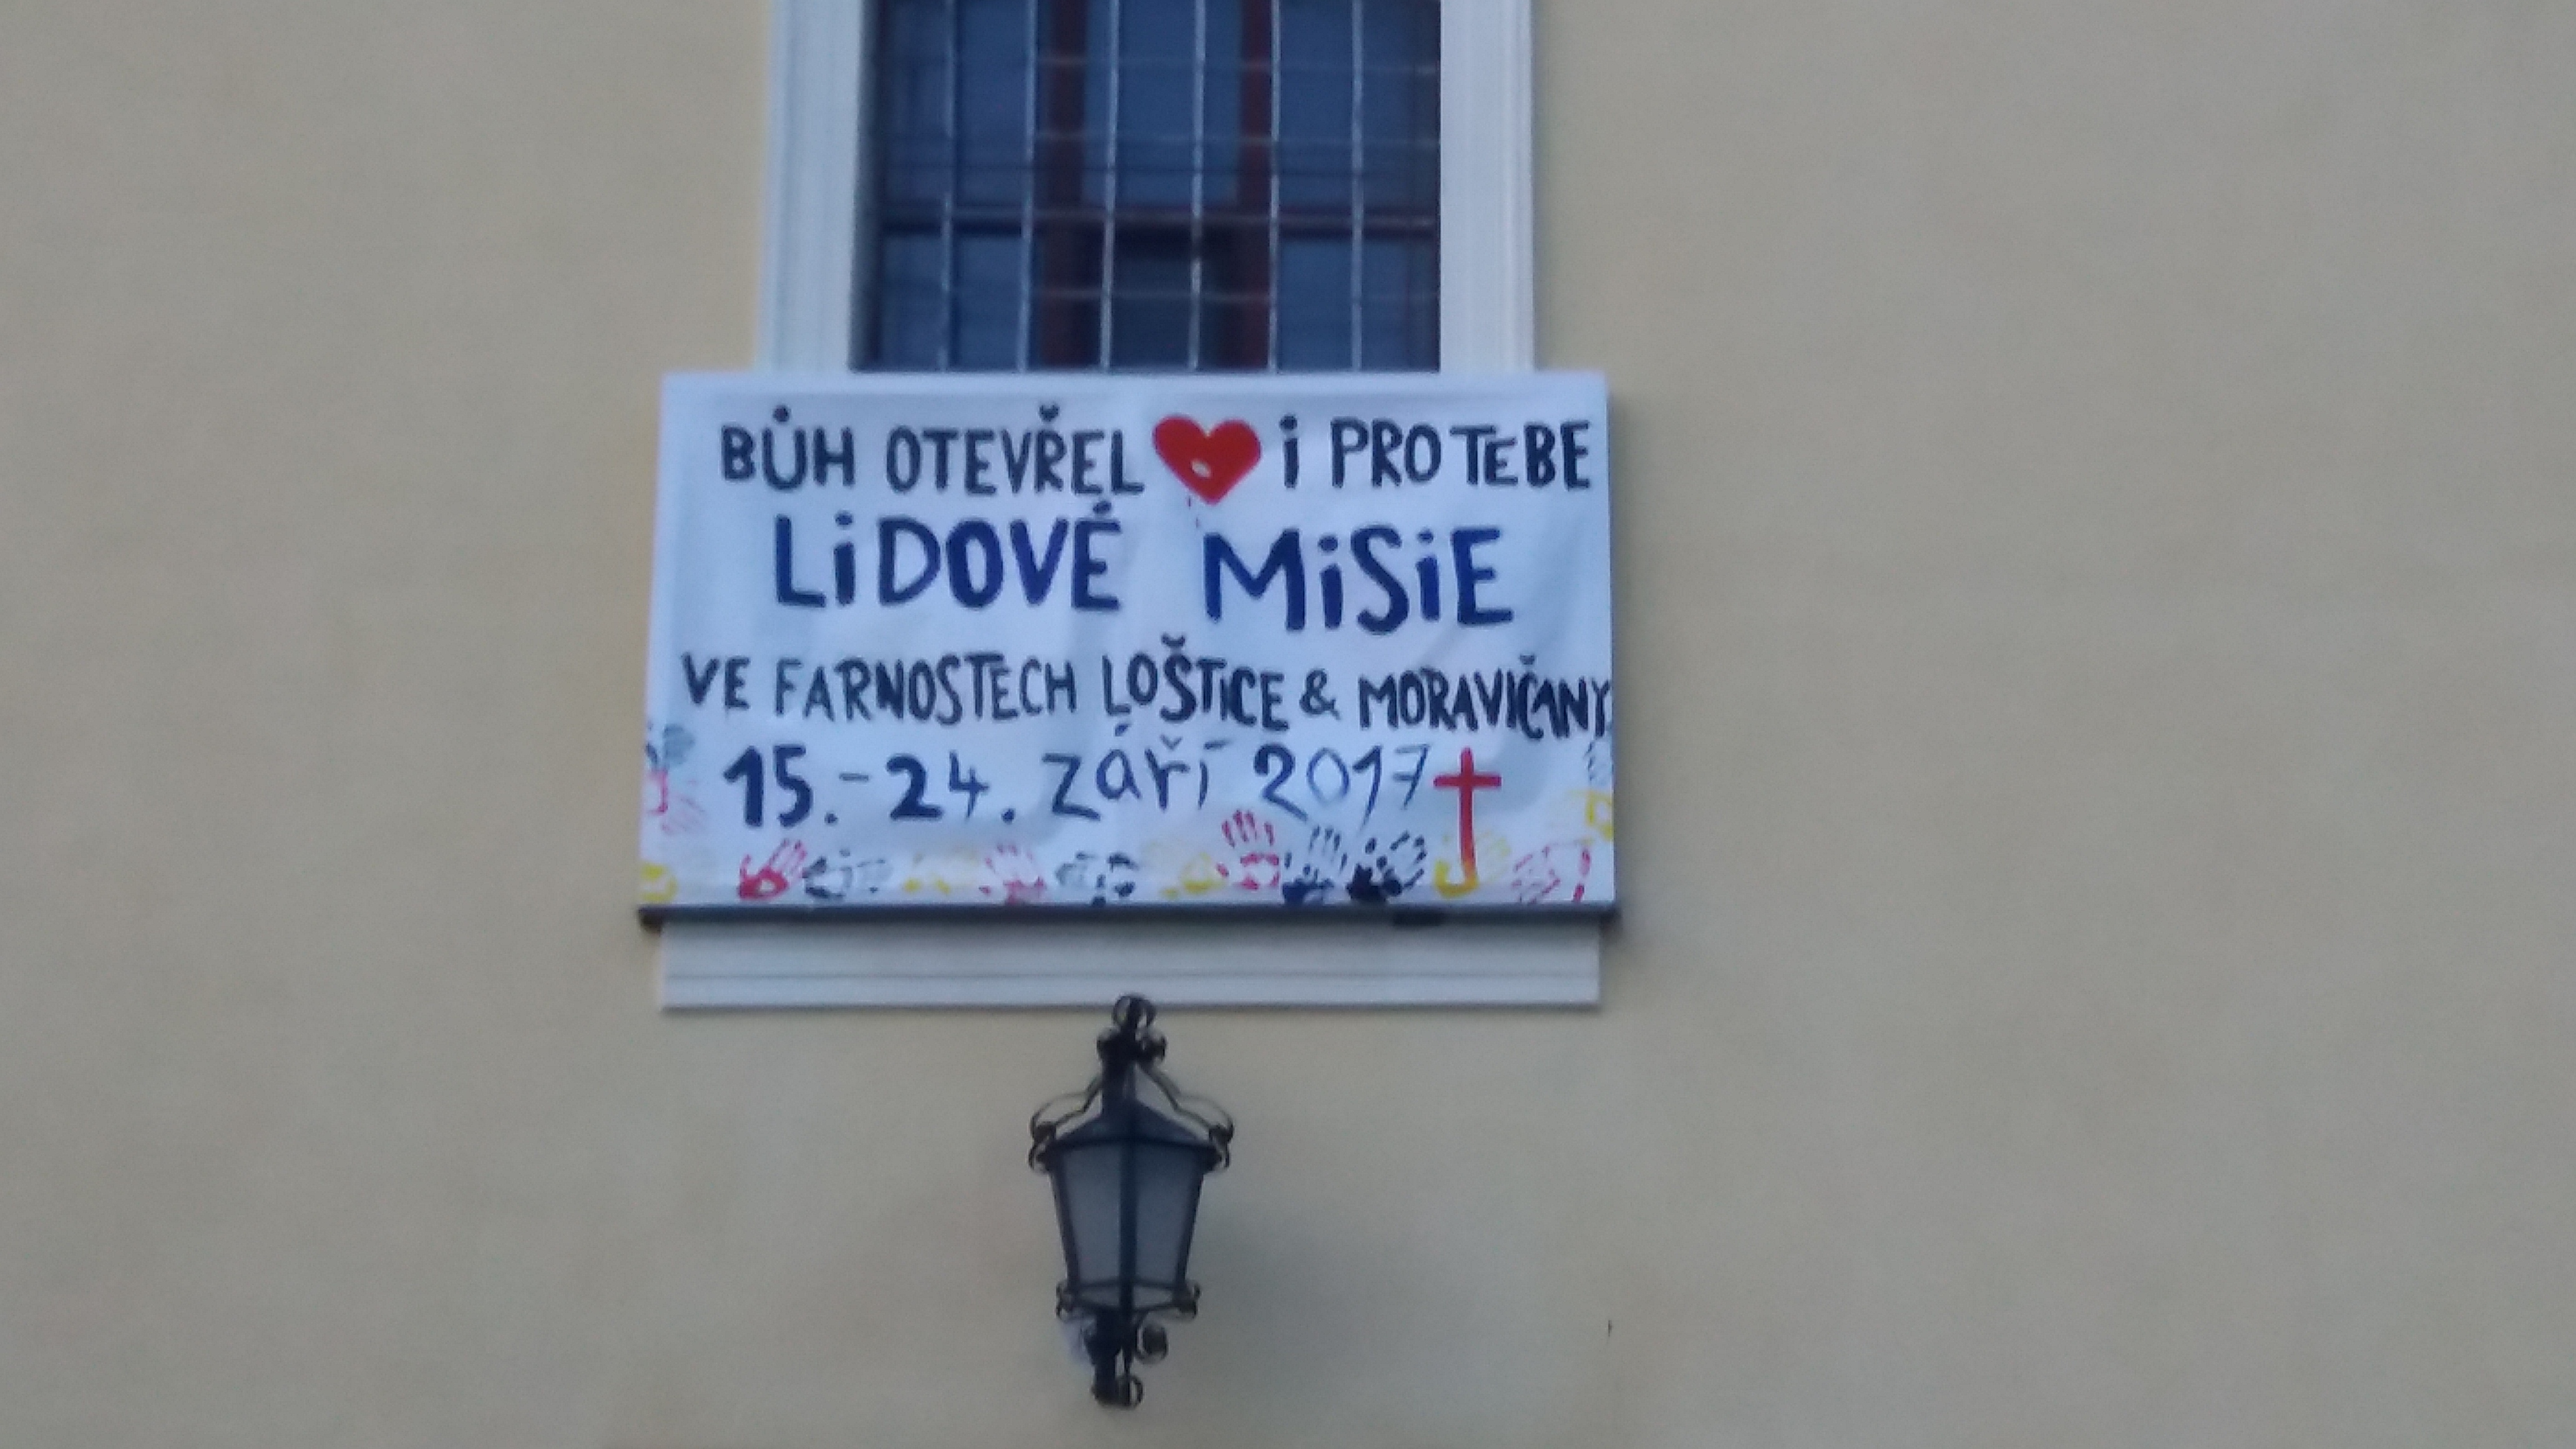 BŮH OTEVŘEL ❤ i PRO TEBE
LiDOVÉ MiSiE
VE FARNOSTECH LOŠTiCE & MORAVIČANY
15.-24. září 2017